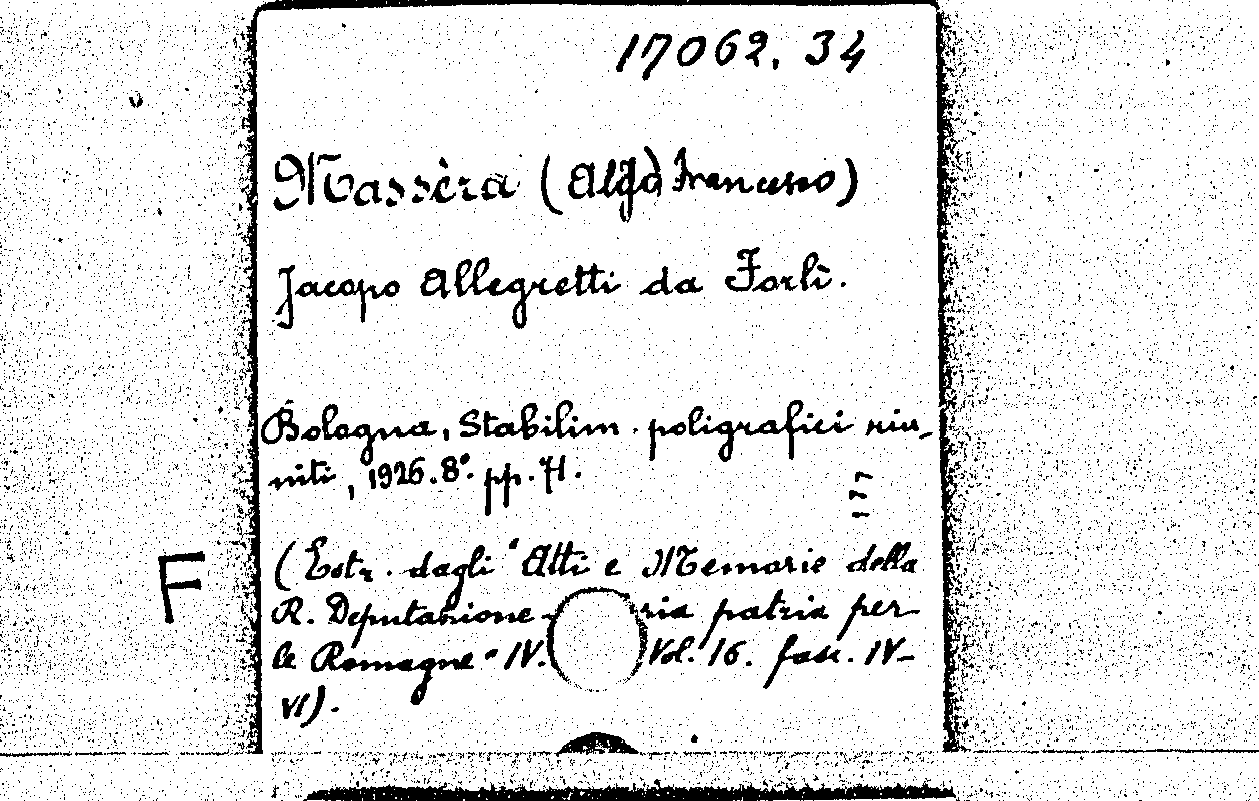 17062. 34
Massèra (Aldo Francesco)
Jacopo Allegretti da Forlì.
Bologna, Stabilim. poligrafici riu-
niti, 1926. 8° pp. 71.
F
(Estr. dagli "Atti e Memorie della
R. Deputazione ria patria per
le Romagne" IV. Vol. 16. fasc. IV-
VI).